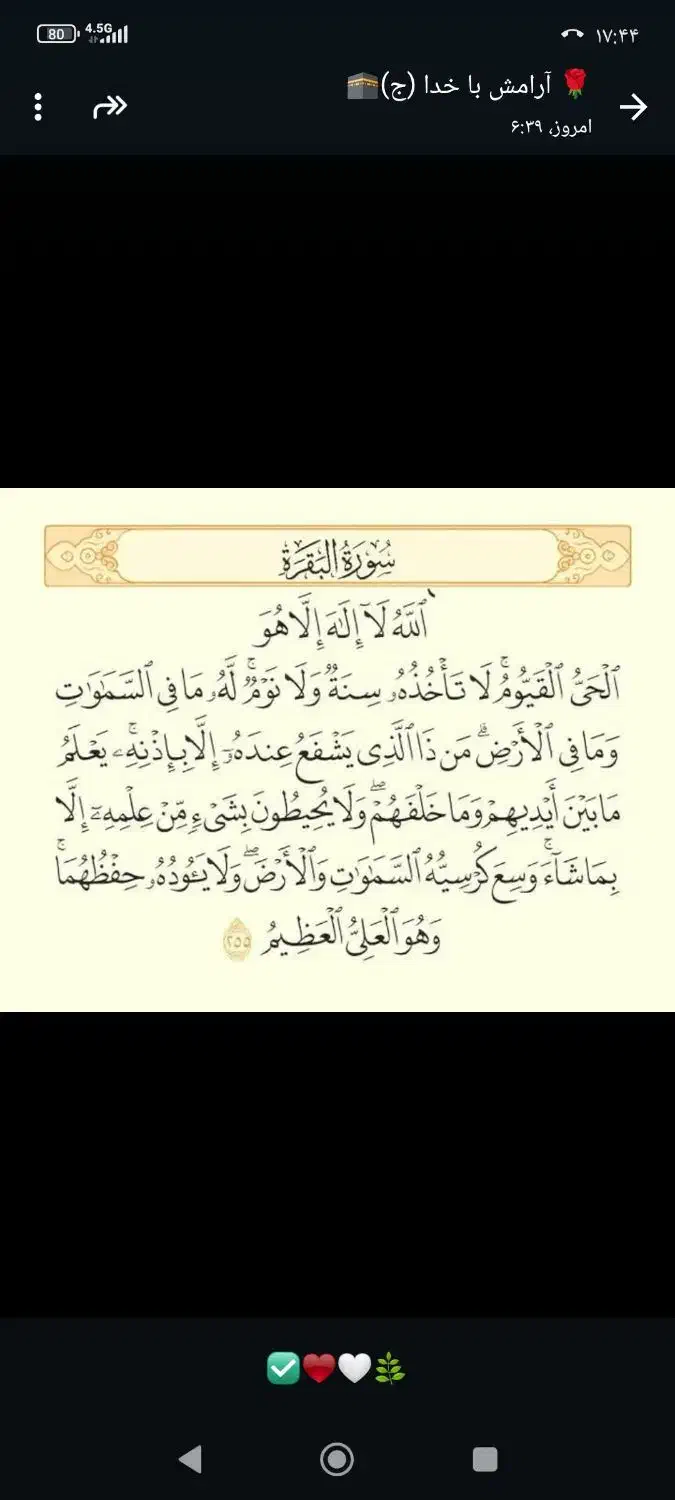 80 4.5G ۱۷:۴۴
🌹 آرامش با خدا (ج)🕋
امروز، ۶:۳۹
سُورَةُ البَقَرَةِ
ٱللَّهُ لَآ إِلَٰهَ إِلَّا هُوَ
ٱلْحَىُّ ٱلْقَيُّومُ ۚ لَا تَأْخُذُهُۥ سِنَةٌ وَلَا نَوْمٌ ۚ لَّهُۥ مَا فِى ٱلسَّمَٰوَٰتِ
وَمَا فِى ٱلْأَرْضِ ۗ مَن ذَا ٱلَّذِى يَشْفَعُ عِندَهُۥٓ إِلَّا بِإِذْنِهِۦ ۚ يَعْلَمُ
مَا بَيْنَ أَيْدِيهِمْ وَمَا خَلْفَهُمْ ۖ وَلَا يُحِيطُونَ بِشَىْءٍ مِّنْ عِلْمِهِۦٓ إِلَّا
بِمَا شَآءَ ۚ وَسِعَ كُرْسِيُّهُ ٱلسَّمَٰوَٰتِ وَٱلْأَرْضَ ۖ وَلَا يَـُٔودُهُۥ حِفْظُهُمَا ۚ
وَهُوَ ٱلْعَلِىُّ ٱلْعَظِيمُ ٢٥٥
✅❤️🤍🌿